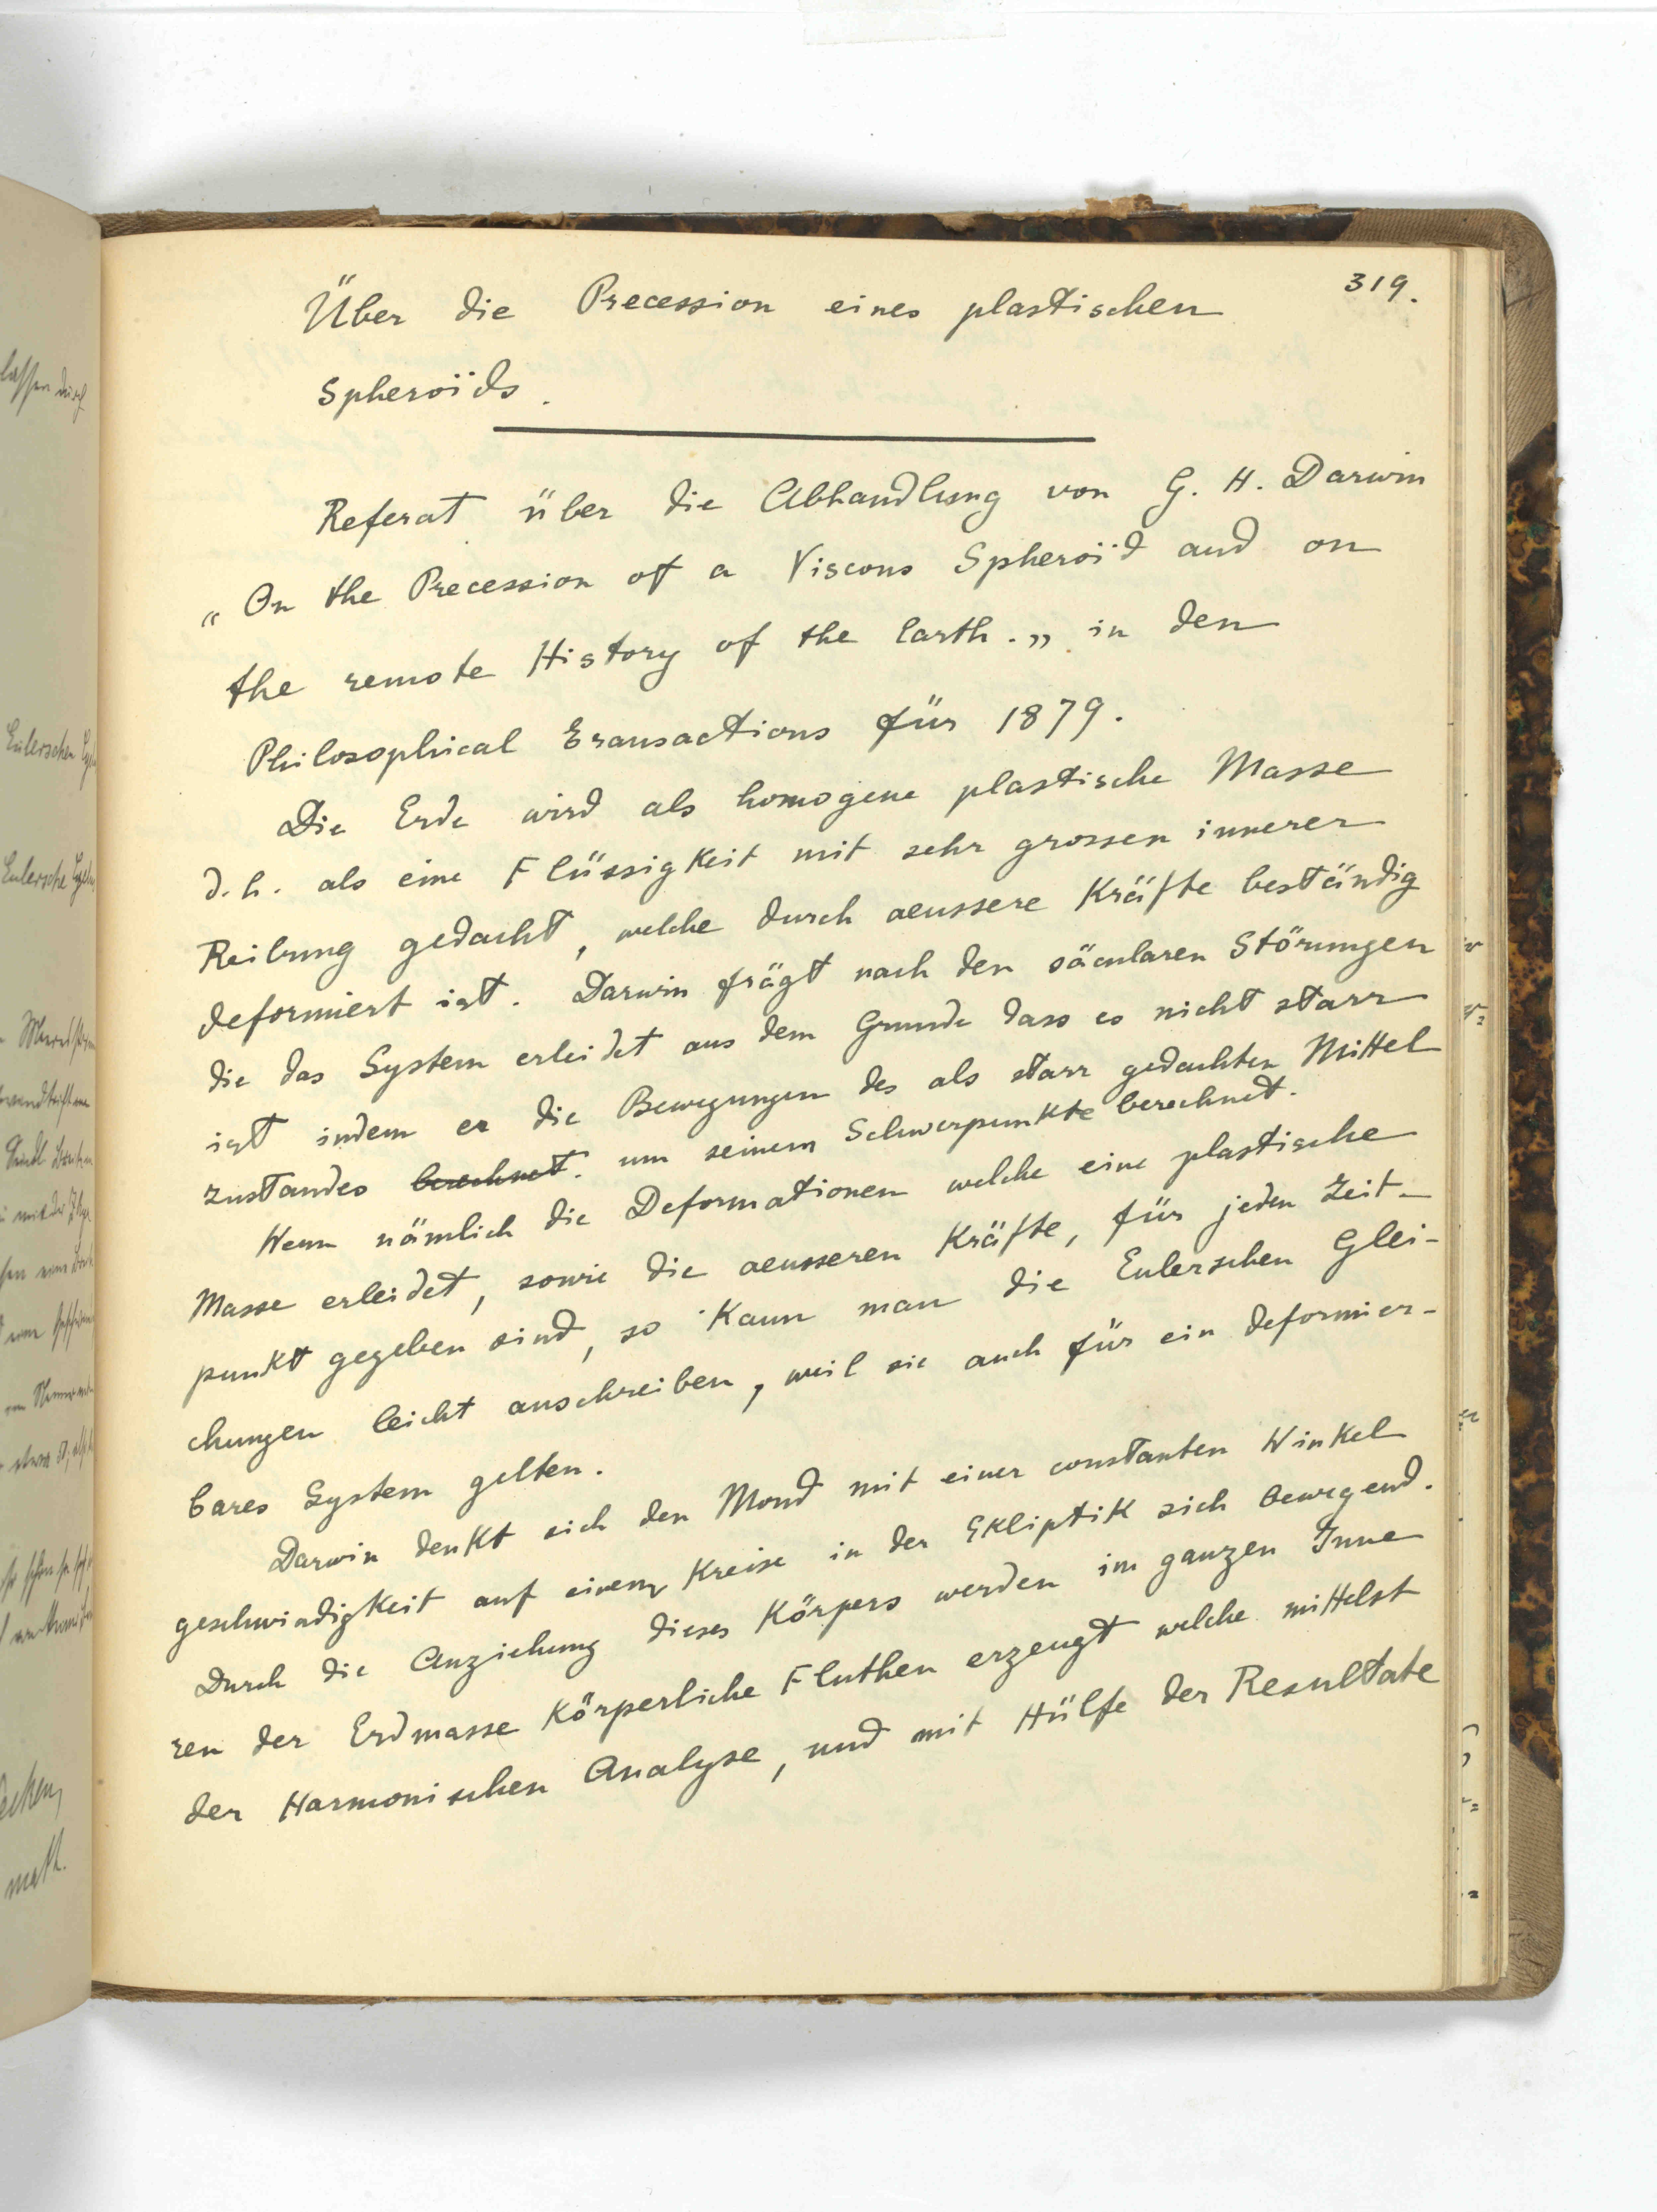 319.
Über die Precession eines plastischen
Spheroïds.
Referat über die Abhandlung von G. H. Darwin
„On the Precession of a Viscous Spheroïd and on
the remote History of the Earth.„ in den
Philosophical Transactions für 1879.
Die Erde wird als homogene plastische Masse
d.h. als eine Flüssigkeit mit sehr grossen innerer
Reibung gedacht, welche durch aeussere Kräfte beständig
deformiert ist. Darwin frägt nach den säcularen Störungen
die das System erleidet aus dem Grunde dass es nicht starr
ist indem er die Bewegungen des als starr gedachten Mittel
zustandes berechnet. um seinem Schwerpunkte berechnet.
Wenn nämlich die Deformationen welche eine plastische
Masse erleidet, sowie die aeusseren Kräfte, für jeden Zeit-
punkt gegeben sind, so kann man die Eulerschen Glei-
chungen leicht anschreiben, weil sie auch für ein deformier-
bares System gelten.
Darwin denkt sich den Mond mit einer constanten Winkel
geschwindigkeit auf einem Kreise in der Ekliptik sich bewegend.
Durch die Anziehung dieses Körpers werden im ganzen Inne
ren der Erdmasse körperliche Fluthen erzeugt welche mittelst
der Harmonischen Analyse, und mit Hülfe der Resultate